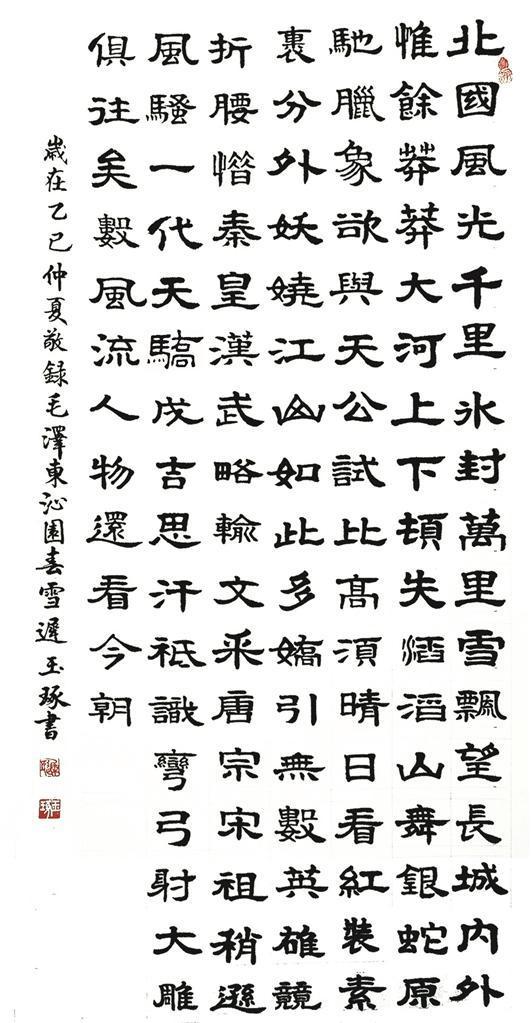 北國風光千里氷封萬里雪飄望長城内外
惟餘莽莽大河上下頓失滔滔山舞銀蛇原
馳臘象欲與天公試比髙須晴日看紅裝素
裹分外妖嬈江山如此多嬌引無數英雄競
折腰惜秦皇漢武略輸文采唐宗宋祖稍遜
風騷一代天驕成吉思汗祗識彎弓射大雕
俱往矣數風流人物還看今朝
歲在乙巳仲夏敬録毛澤東沁園春雪遲玉琢書